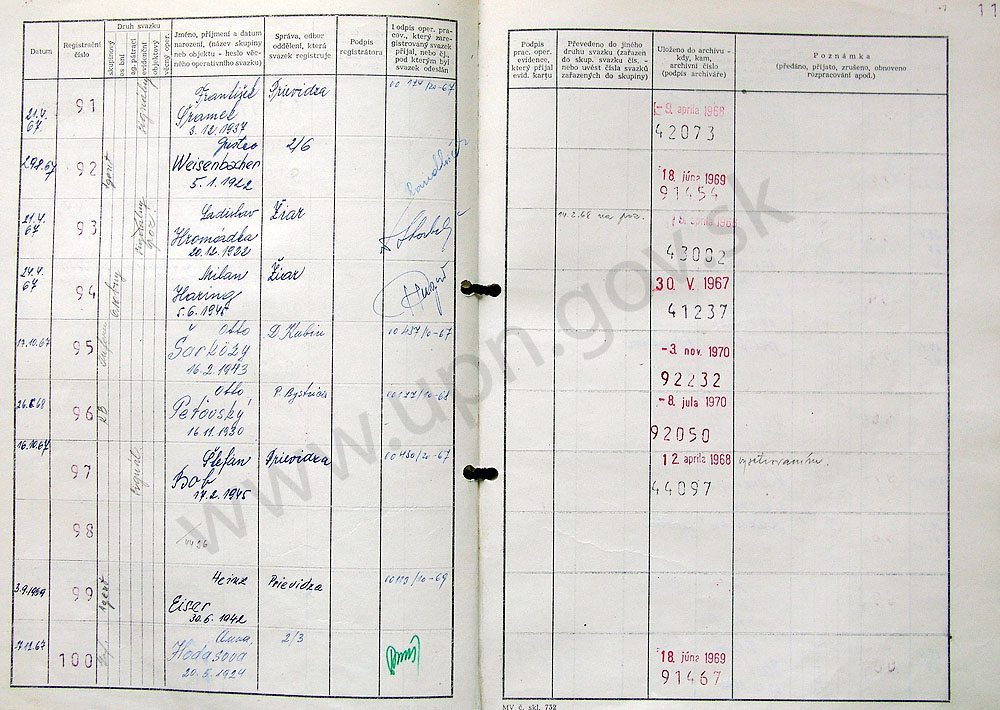 11
Datum
Registrační číslo
Druh svazku
skupinový
osobní
ag. pátrací
evidenční
objektový
Jméno, příjmení a datum narození, (název skupiny neb objektu - heslo všeobecného operativního svazku)
Správa, odbor oddělení, která svazek registruje
Podpis registrátora
Podpis oper. pracov., který zaregistrovaný svazek přijal, nebo čj., pod kterým byl svazek odeslán
Podpis prac. oper. evidence, který přijal evid. kartu
Převedeno do jiného druhu svazku (zařazen do skup. svazku čís. - nebo uvést čísla svazků zařazených do skupiny)
Uloženo do archivu - kdy, kam, archivní číslo (podpis archiváře)
Poznámka
(předáno, přijato, zrušeno, obnoveno rozpracování apod.)
21.4. 67
91
signálny
František
Šramek
3.12.1937
Prievidza
00174/20-67
- 9. apríla 1968
42073
29.8.67
92
agent
Gustav
Weisenbacher
5.1.1922
2/6
18. júna 1969
91454
21.4. 67
93
signálny
Ladislav
Hromádka
20.12.1922
Žiar
14.2.68 na poz.
apríla 1968
43002
24.4. 67
94
osobny
Milan
Haring
5.6.1945
Žiar
30. V. 1967
41237
17.10.67
95
Otto
Šarközy
16.2.1943
D. Kubín
00457/10-67
- 3. nov. 1970
92232
96
KB
Otto
Peťovský
16.11.1930
P. Bystrica
00177/10-68
- 8. júla 1970
92050
16.10.67
97
signál
Štefan
Bob
17.2.1945
Prievidza
00450/20-67
12. apríla 1968
44097
98
99
3.9.1969
agent
Heinz
Eiser
30.6.1942
Prievidza
00113/10-69
7.12.67
100
Anna,
Hodasova
20.5.1924
2/3
18. júna 1969
91467
www.upn.gov.sk
MV č. skl. 732